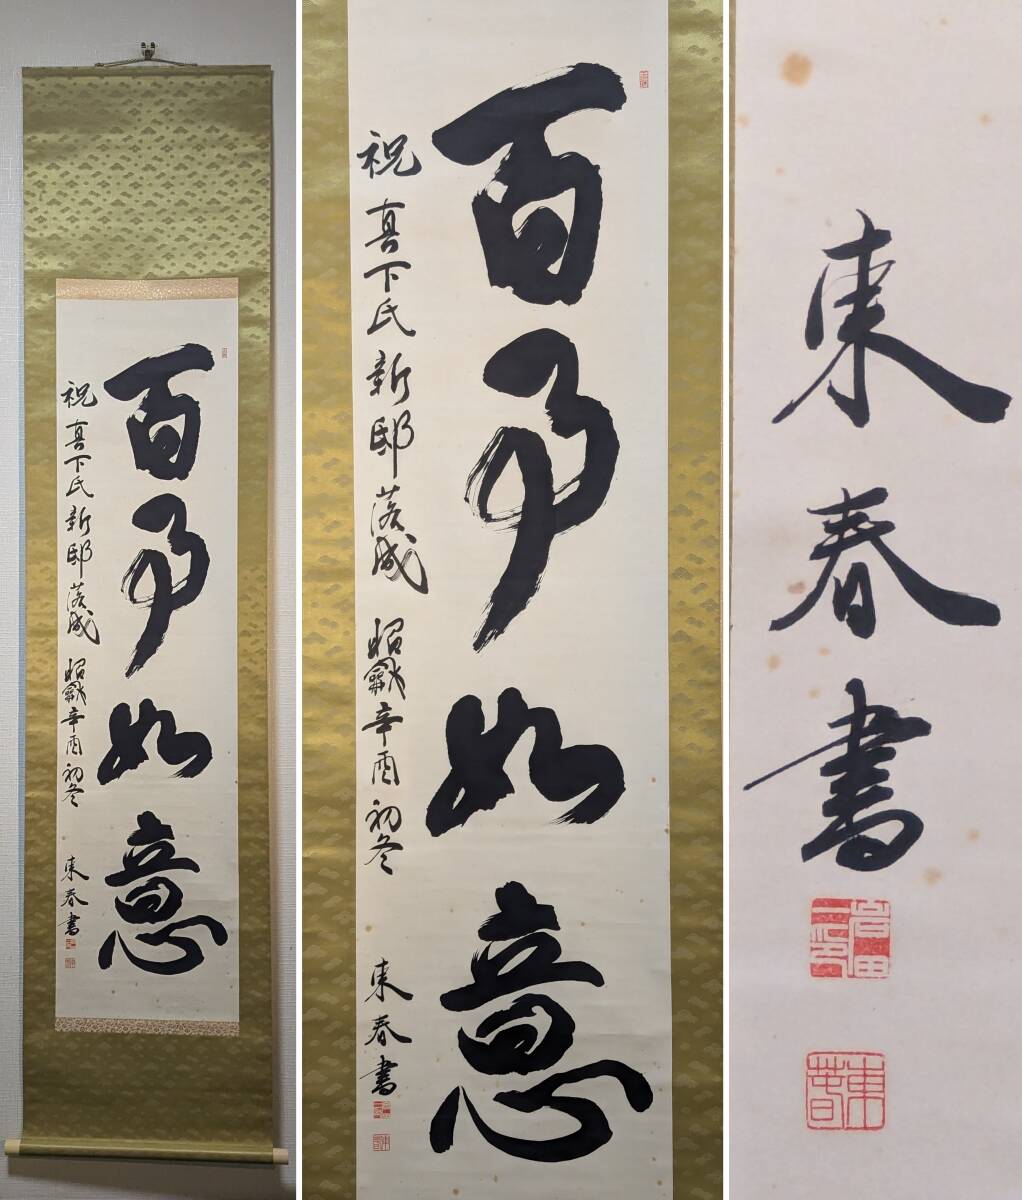 百事如意
祝 真下氏新邸落成 昭龢辛酉初冬 東春書
百事如意
祝 真下氏新邸落成 昭龢辛酉初冬 東春書
東春書
岩田
東春